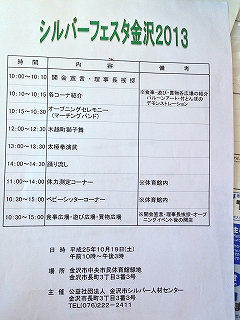 シルバーフェスタ金沢2013
時間 内容 備考
10:00～10:10 開会宣言・理事長挨拶
10:10～10:15 各コーナ紹介 ※食事・遊び・買物各広場の紹介
バルーンアート・竹とんぼの
デモンストレーション
10:15～10:30 オープニングセレモニー
(マーチングバンド)
12:00～12:30 木越町獅子舞
13:00～13:30 太極拳演武
13:30～14:00 踊り流し
11:00～14:00 体力測定コーナー ※体育館内
11:00～14:00 ベビーシッターコーナー ※体育館内
10:30～15:00 食事広場・遊び広場・買物広場 ※開会宣言・理事長挨拶・オープ
ニングイベント後の開店
日時 平成25年10月19日(土)
午前10時～午後3時
場所 金沢市中央市民体育館緑地
金沢市長町3丁目3番3号
主催 公益社団法人 金沢市シルバー人材センター
金沢市長町3丁目3番3号
TEL(076)222-2411